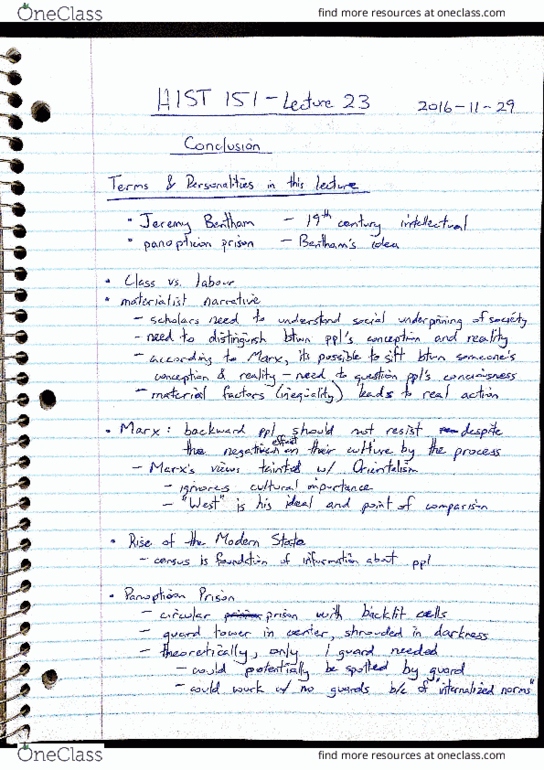 OneClass
find more resources at oneclass.com
HIST 151 - Lecture 23
2016-11-29
Conclusion
Terms & Personalities in this lecture
• Jeremy Bentham - 19th century intellectual
• panopticon prison - Bentham's idea
• Class vs. labour
• materialist narrative
- scholars need to understand social underpinning of society
- need to distinguish btwn ppl's conception and reality
- according to Marx, its possible to sift btwn someone's
conception & reality - need to question ppl's conciousness
- material factors (inequality) leads to real action
• Marx: backward ppl should not resist despite
the negative effect on their culture by the process
- Marx's views tainted w/ Orientalism
- ignores cultural importance
- "West" is his ideal and point of comparison
• Rise of the Modern State
- census is foundation of information about ppl
• Panopticon Prison
- circular prison with backlit cells
- guard tower in center, shrouded in darkness
- theoretically, only 1 guard needed
- could potentially be spotted by guard
- could work w/ no guards b/c of "internalized norms"
OneClass
find more resources at oneclass.com